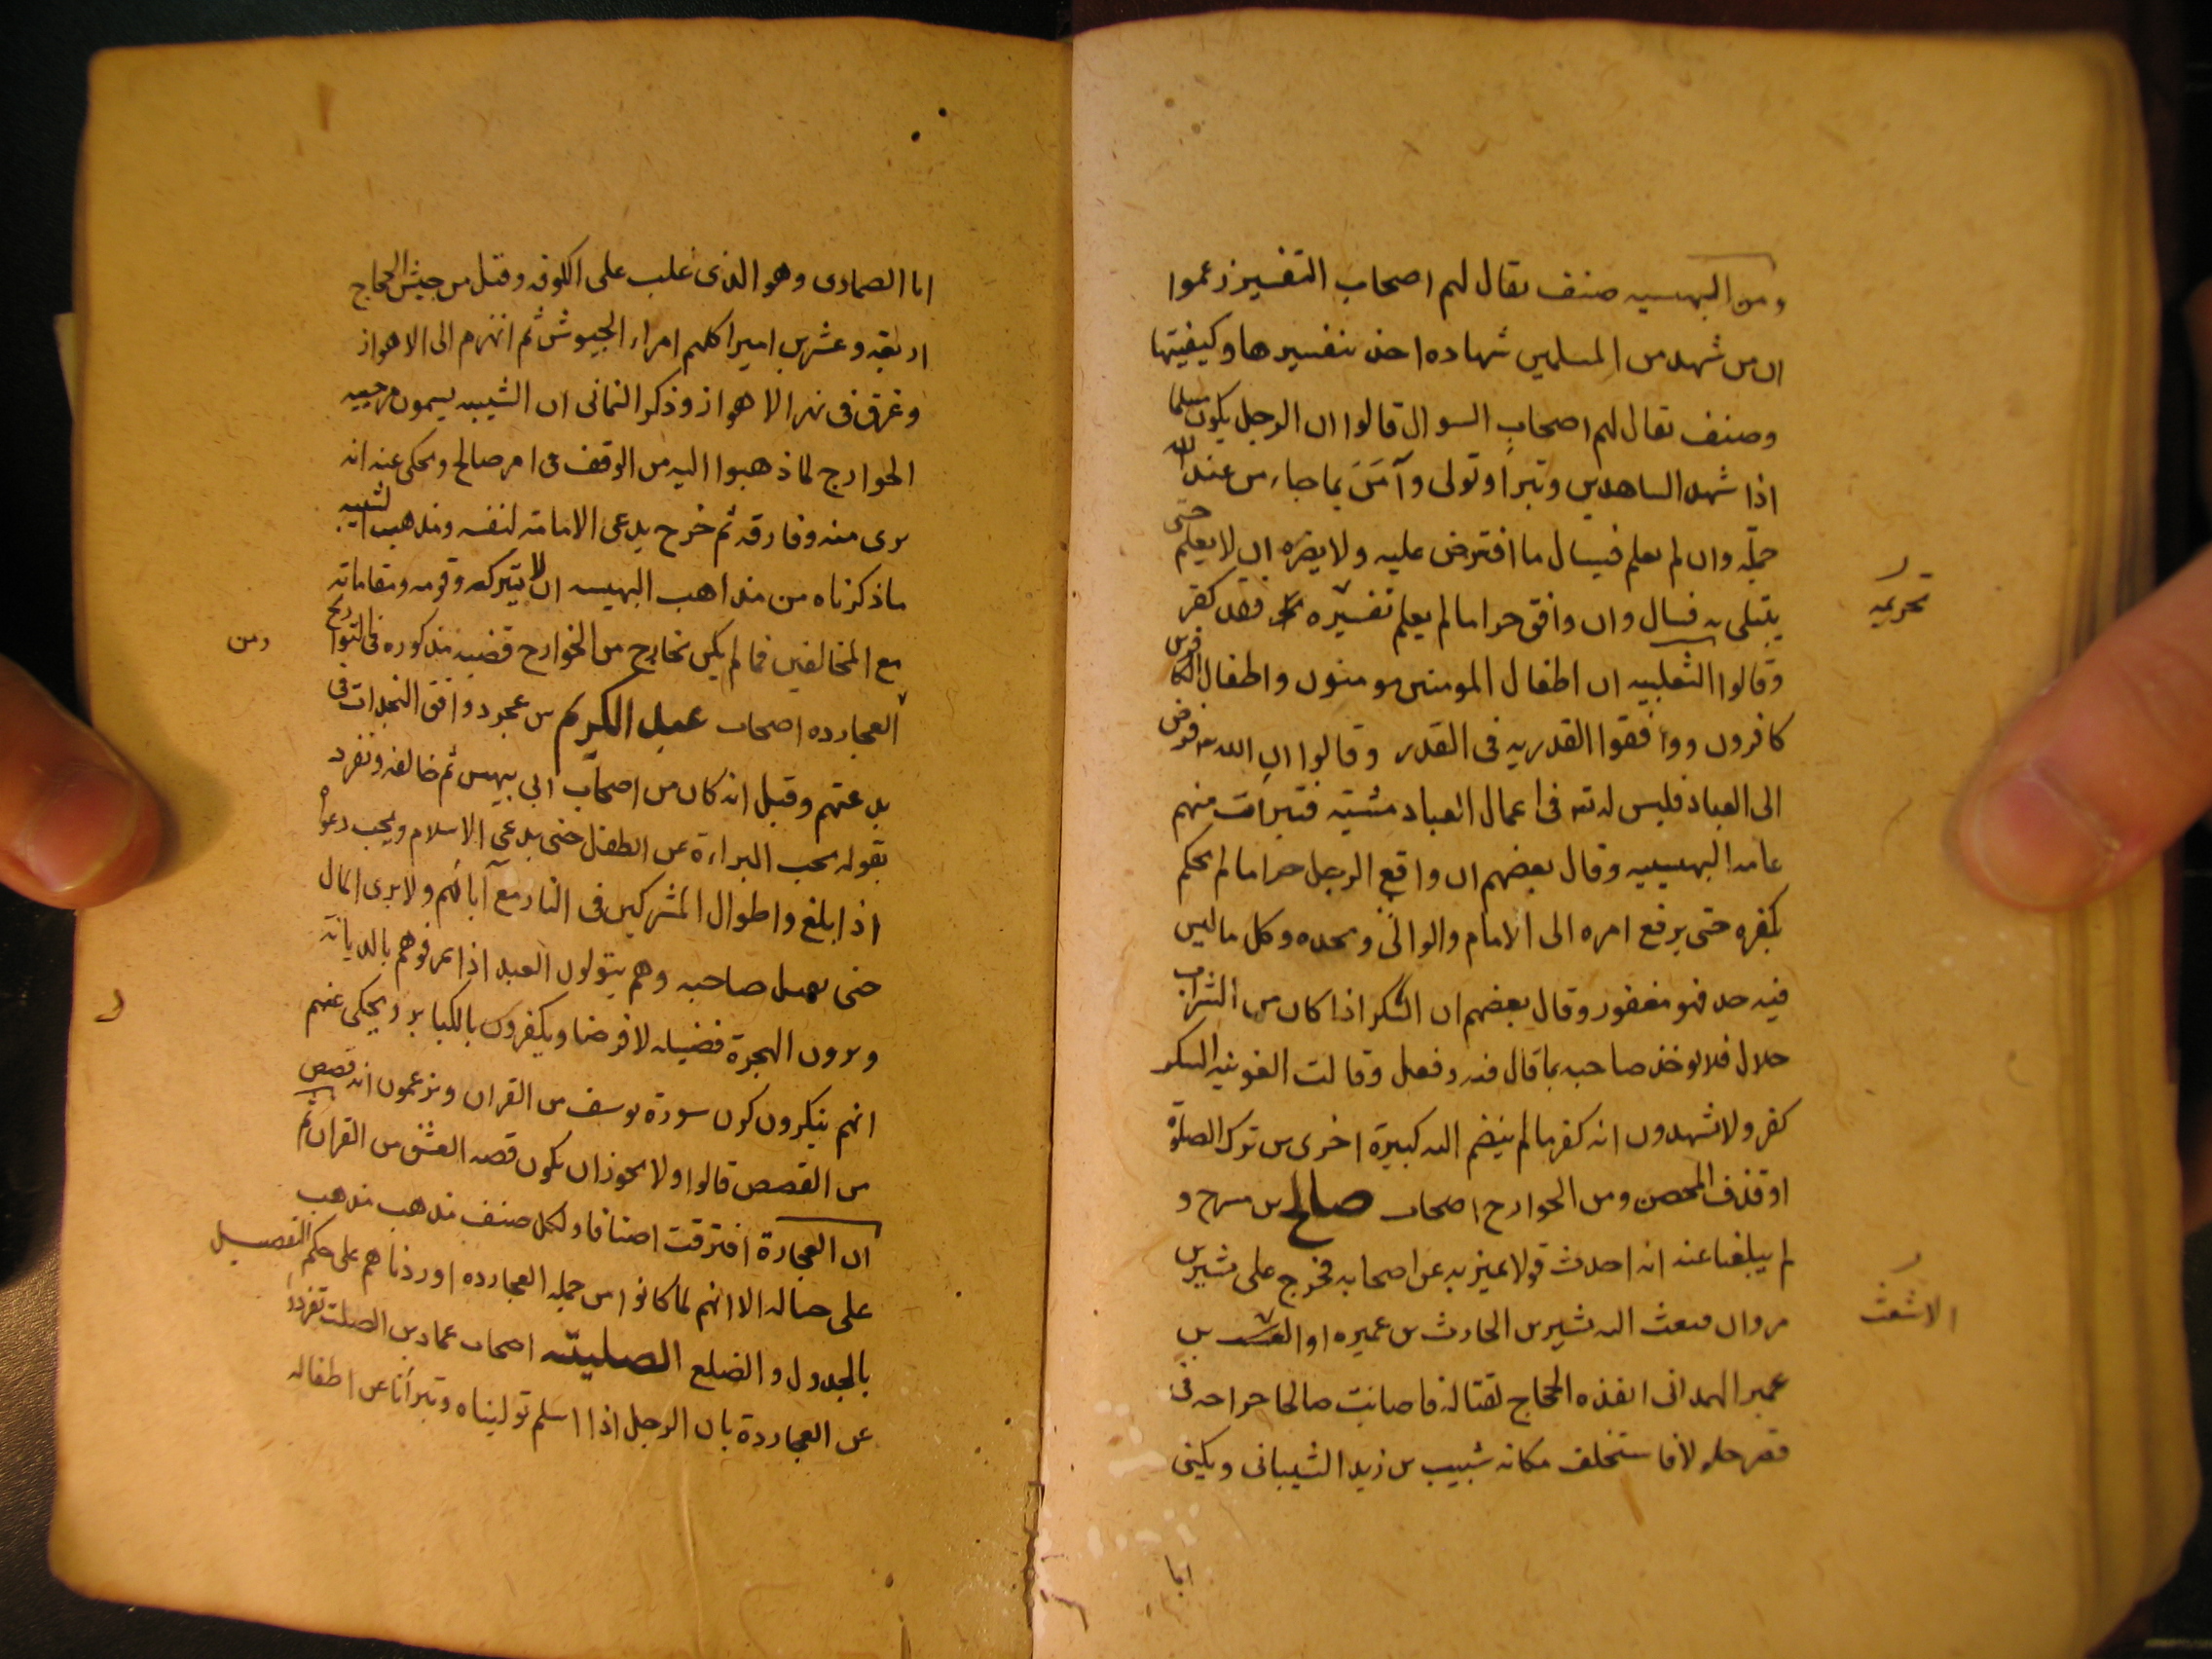 ومن البهسيه صنف يقال لهم اصحاب التفسير زعموا
ان من شهد من المسلمين شهاده اخذ بتفسيرها وكيفيتها
وصنف يقال لهم اصحاب السوال قالوا ان الرجل يكون مسلما
اذا شهد الشاهدين وتبرأ وتولى وآمَنَ بما جاء من عند الله
جملة وان لم يعلم فيسال ما افترض عليه ولا يضره ان لا يعلم حتى
يبتلى به فسال وان واقع حراما لم يعلم تفسيره فقد كفر
تحريمه
وقالوا الثعلبيه ان اطفال المومنين مومنون واطفال الكافرين
كافرون ووافقوا القدريه فى القدر وقالوا ان الله فوض
الى العباد فليس لله فى اعمال العباد مشية فتبرأت منهم
عامه البهيسيه وقال بعضهم ان واقع الرجل حراما لم يحكم
بكفره حتى يرفع امره الى الامام والوالى ويحده وكل ما ليس
فيه حد فهو مغفور وقال بعضهم ان السكر اذا كان من الشراب
حلال فلا يوخذ صاحبه بما قال فيه وفعل وقالت العونيه السكر
كفر ولا يشهدون انه كفر ما لم ينضم اليه كبيرة اخرى من ترك الصلوة
او قذف المحصن ومن الخوارج اصحاب صالح بن مسرح و
لم يبلغنا عنه انه احدث قولا يميز به عن اصحابه فخرج على بشير بن
مروان فبعث اليه بشير بن الحارث بن عميره او بن
الاشعث
عمير الهمدانى انفذه الحجاج لقتاله فاصابت صالحا جراحه فى
قصر جلولا فاستخلف مكانه شبيب بن زيد الشيبانى ويكنى
ابا
ابا الصحارى وهو الذى غلب على الكوفه وقتل من جيش الحجاج
اربعة وعشرين اميرا كلهم امراء الجيوش ثم انهزم الى الاهواز
وغرق فى نهر الاهواز وذكر اليمانى ان الشبيبيه يسمون مرجيه
الخوارج لما ذهبوا اليه من الوقف فى امر صالح ويحكى عنه انه
برى منه وفارقه ثم خرج يدعى الامامة لنفسه ومذهب الشبيبه
ما ذكرناه من مذاهب البهيسه الا ان شوكته وقومه ومقاماته
مع المخالفين فما لم يكن لخارج من الخوارج قضية مذكوره فى التواريخ
ومن
العجارده اصحاب عبد الكريم بن عجرد وافق النجدات فى
بدعتهم وقيل انه كان من اصحاب ابى بيهس ثم خالفه وتفرد
بقوله يجب البراءة عن الطفل حتى يدعى الاسلام ويجب دعوا
اذا بلغ واطوال المشركين فى النار مع آبائهم ولا يرى المال
حتى يقتل صاحبه وهم يتولون العبد اذا عرفوهم بالديانة
ويرون الهجرة فضيله لا فرضا ويكفرون بالكباير ويحكى عنهم
انهم ينكرون كون سورة يوسف من القران ويزعمون انه قصص
من القصص قالوا ولا يجوز ان يكون قصه العشق من القران ثم
ان العجاردة افترقت اصنافا ولكل صنف مذهب مذهب
على حياله الا انهم لما كانوا من جمله العجارده اوردناهم على حكم التفصيل
بالجدول والضلع الصليتيه اصحاب عمار بن الصلت تفردوا
عن العجاردة بان الرجل اذا اسلم توليناه وتبرأنا عن اطفاله